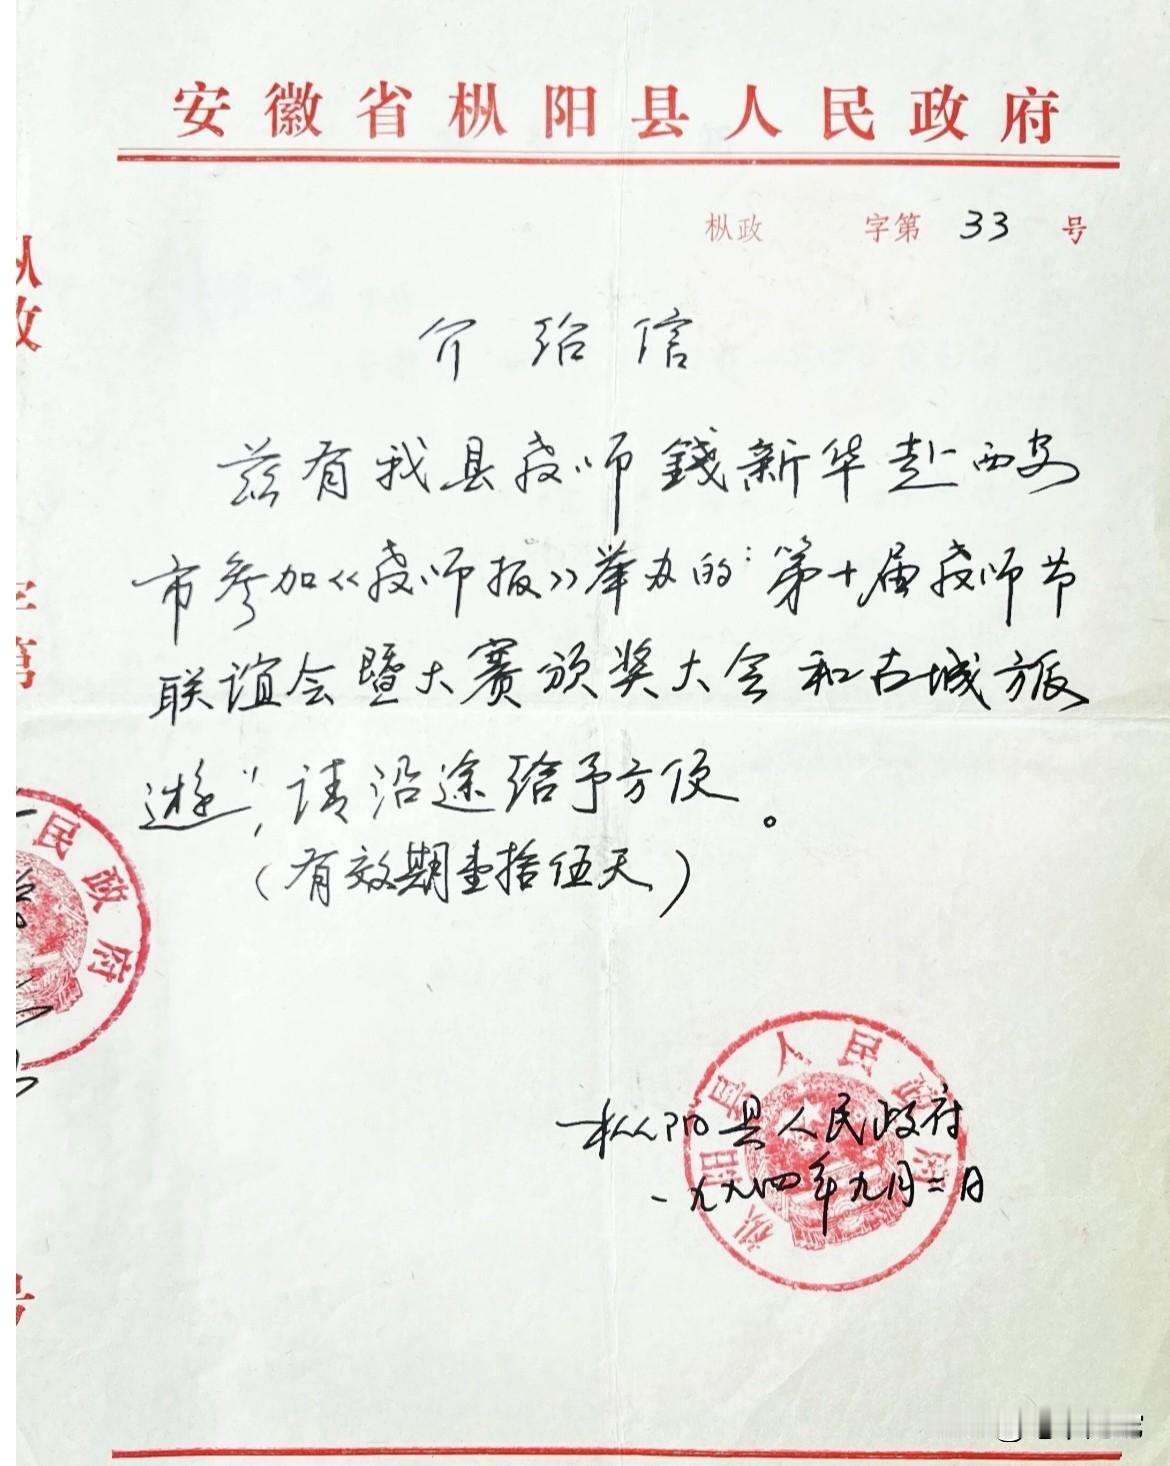 安徽省枞阳县人民政府
枞政 字第 33 号
介绍信
兹有我县教师錢新华赴西安
市参加《教师报》举办的：第十届教师节
联谊会暨大赛颁奖大会和古城旅
遊”，请沿途给予方便。
（有效期壹拾伍天）
枞阳县人民政府
一九九四年九月二日
枞阳县人民政府
枞政
字第
号
民政府